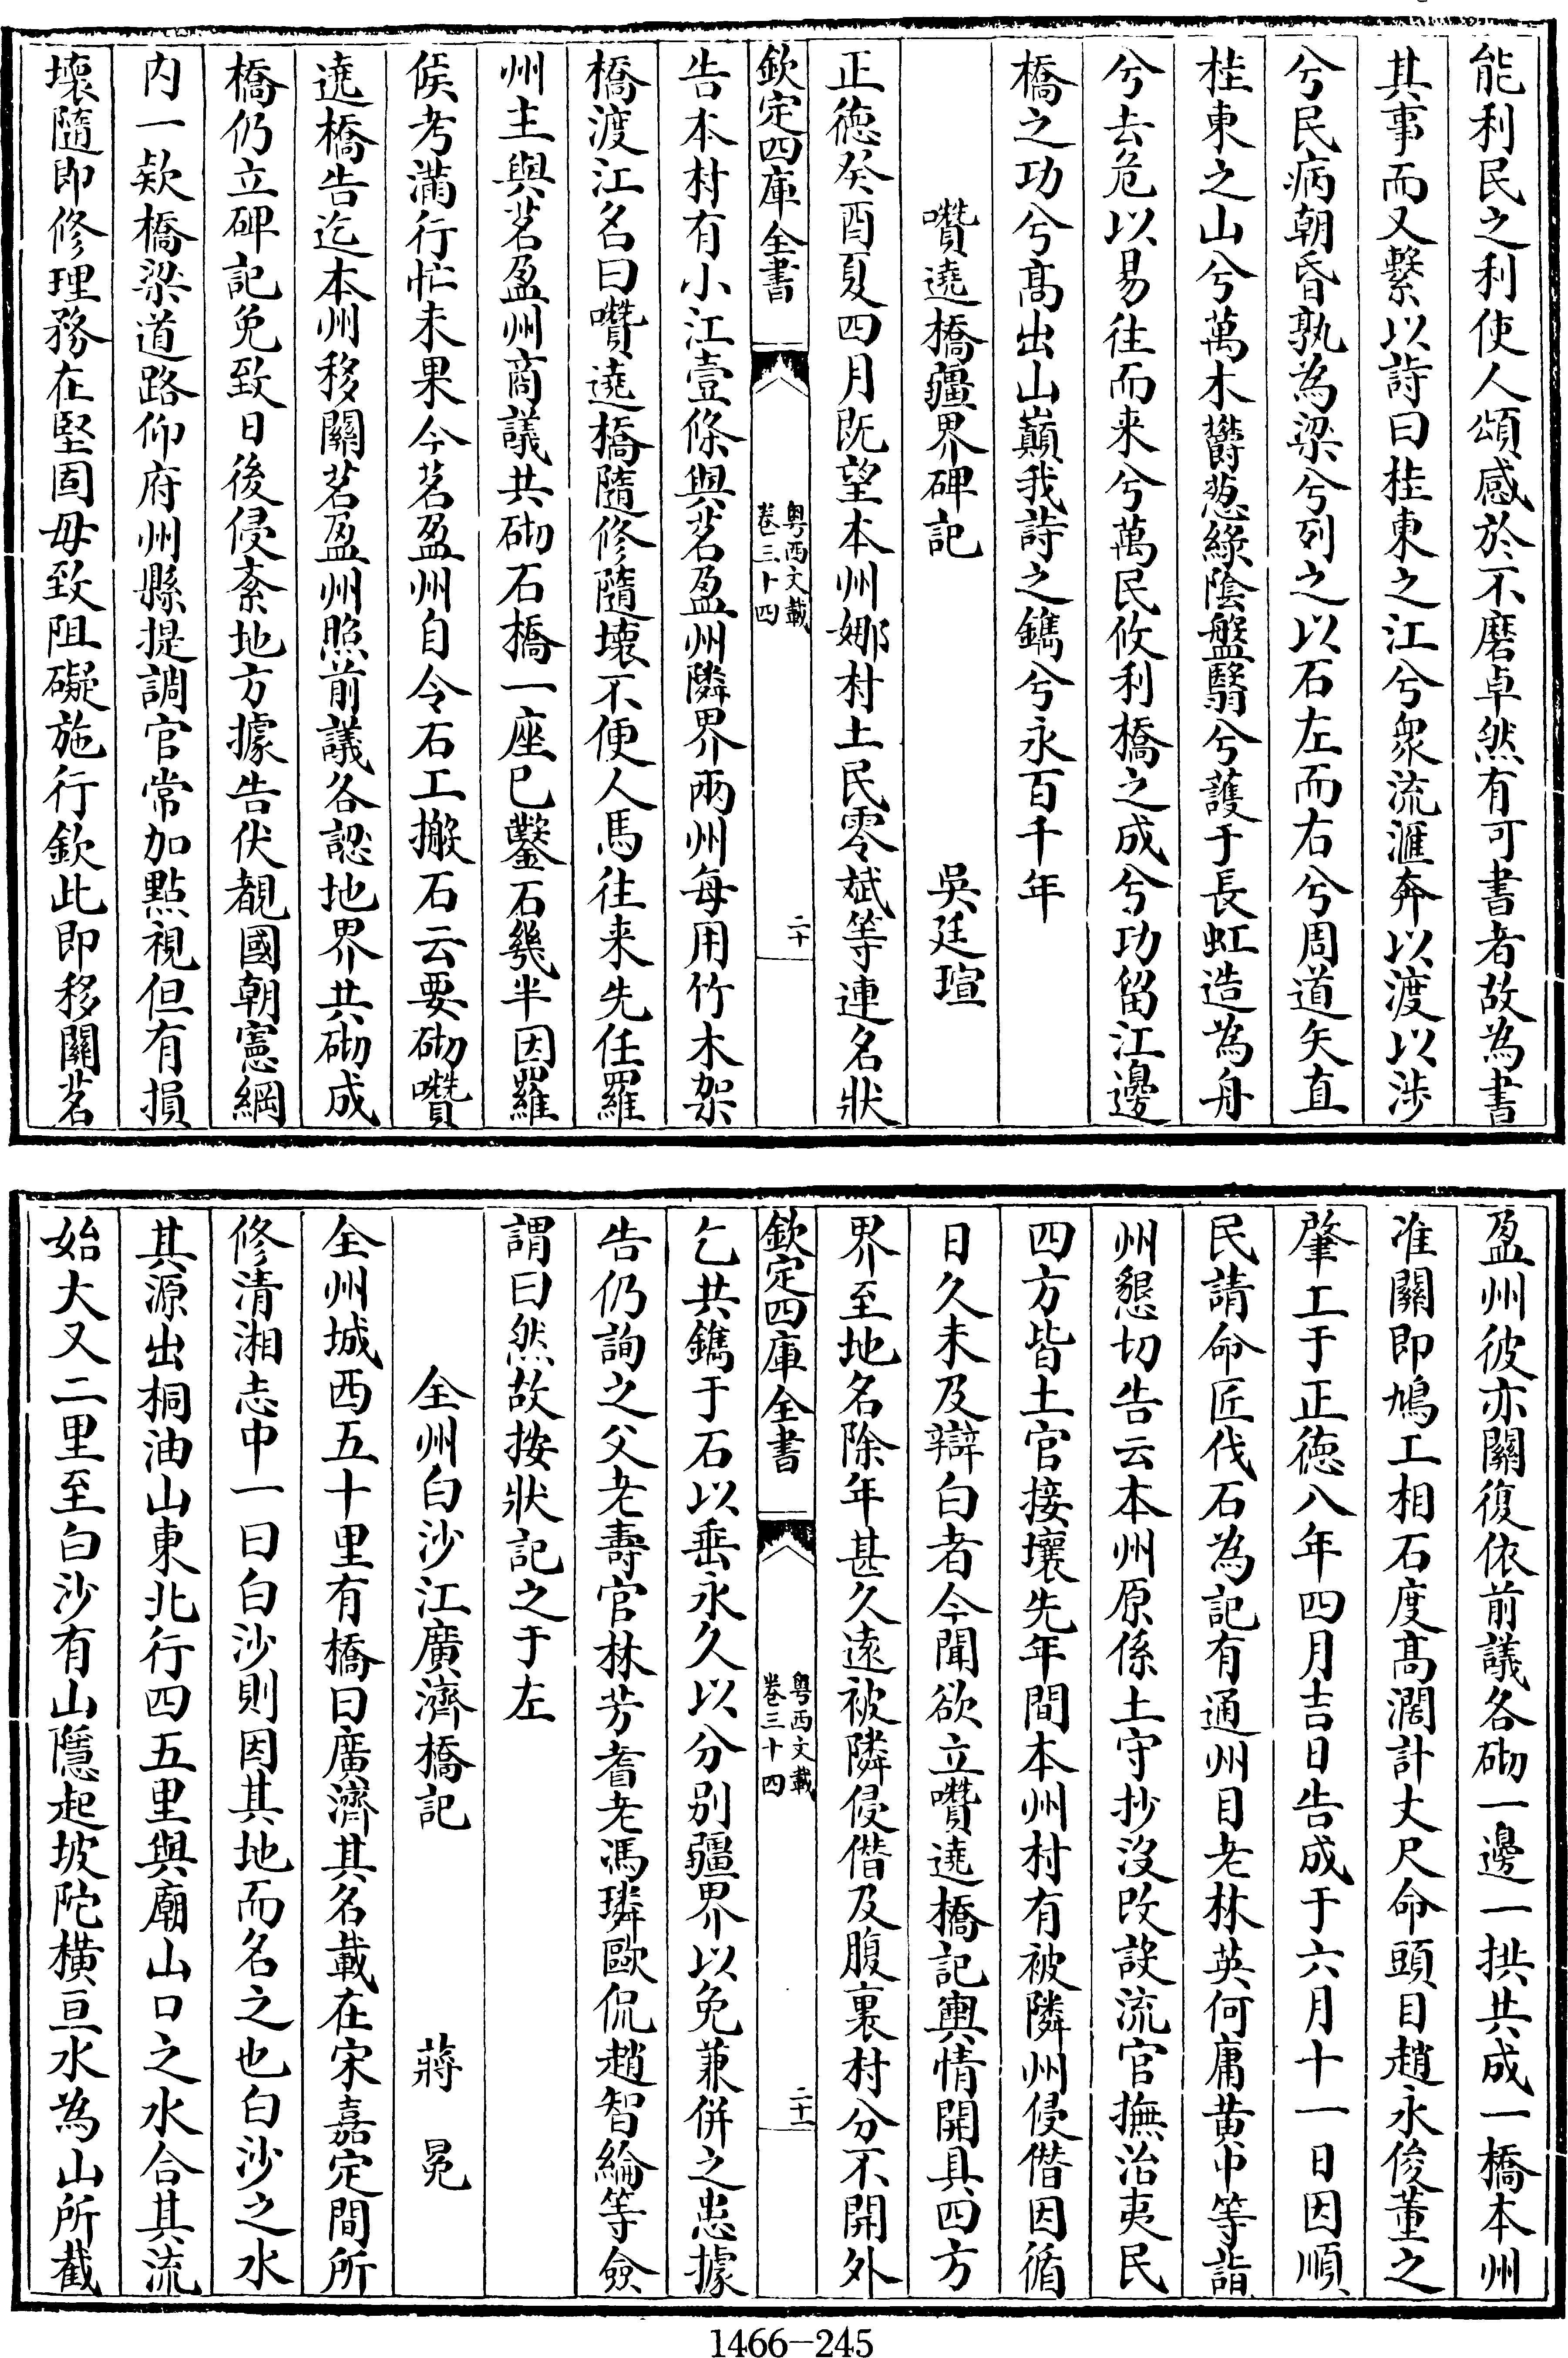 能利民之利使人頌感於不磨卓然有可書者故為書
其事而又繫以詩曰桂東之江兮衆流滙奔以渡以涉
兮民病朝昏孰為梁兮列之以石左而右兮周道矢直
桂東之山兮萬木欝葱緑陰盤翳兮護于長虹造為舟
兮去危以易往而来兮萬民攸利橋之成兮功留江邊
橋之功兮髙出山巔我詩之鐫兮永百千年
囋遶橋疆界碑記　吳廷瑄
正徳癸酉夏四月既望本州娜村土民零斌等連名狀
欽定四庫全書　粤西文載卷三十四　二十
告本村有小江壹條與茗盈州隣界兩州每用竹木架
橋渡江名曰囋遶橋隨修隨壞不便人馬往来先任羅
州主與茗盈州商議共砌石橋一座已鑿石幾半因羅
侯考滿行忙未果今茗盈州自令石工搬石云要砌囋
遶橋告迄本州移關茗盈州照前議各認地界共砌成
橋仍立碑記免致日後侵紊地方據告伏覩國朝憲綱
内一欵橋梁道路仰府州縣提調官常加點視但有損
壞隨即修理務在堅固毋致阻礙施行欽此即移關茗
盈州彼亦關復依前議各砌一邊一拱共成一橋本州
准關即鳩工相石度髙濶計丈尺命頭目趙永俊董之
肇工于正徳八年四月吉日告成于六月十一日因順
民請命匠伐石為記有通州目老林英何庸黄中等詣
州懇切告云本州原係土守抄沒改設流官撫治夷民
四方皆土官接壤先年間本州村有被隣州侵僣因循
日久未及辯白者今聞欲立囋遶橋記輿情開具四方
界至地名除年甚久遠被隣侵僣及腹裏村分不開外
欽定四庫全書　粤西文載卷三十四　二十一
乞共鐫于石以垂永久以分别疆界以免兼併之患據
告仍詢之父老壽官林芳耆老馮璘歐侃趙智綸等僉
謂曰然故按狀記之于左
全州白沙江廣濟橋記　蔣冕
全州城西五十里有橋曰廣濟其名載在宋嘉定間所
修清湘志中一曰白沙則因其地而名之也白沙之水
其源出桐油山東北行四五里與廟山口之水合其流
始大又二里至白沙有山隱起坡陀横亘水為山所截
1466-245